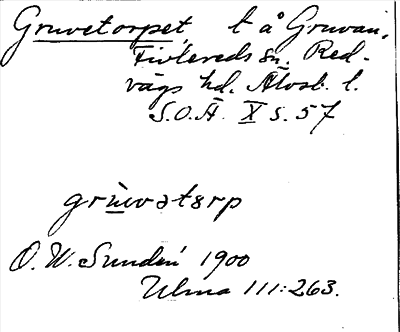 Gruvetorpet, t å Gruvan,
Fivlereds sn. Red-
vägs hd. Älvsb. l.
S.O.Ä. X s. 57
grùvatɵrp
O. W. Sundén 1900
Ulma 111:263.